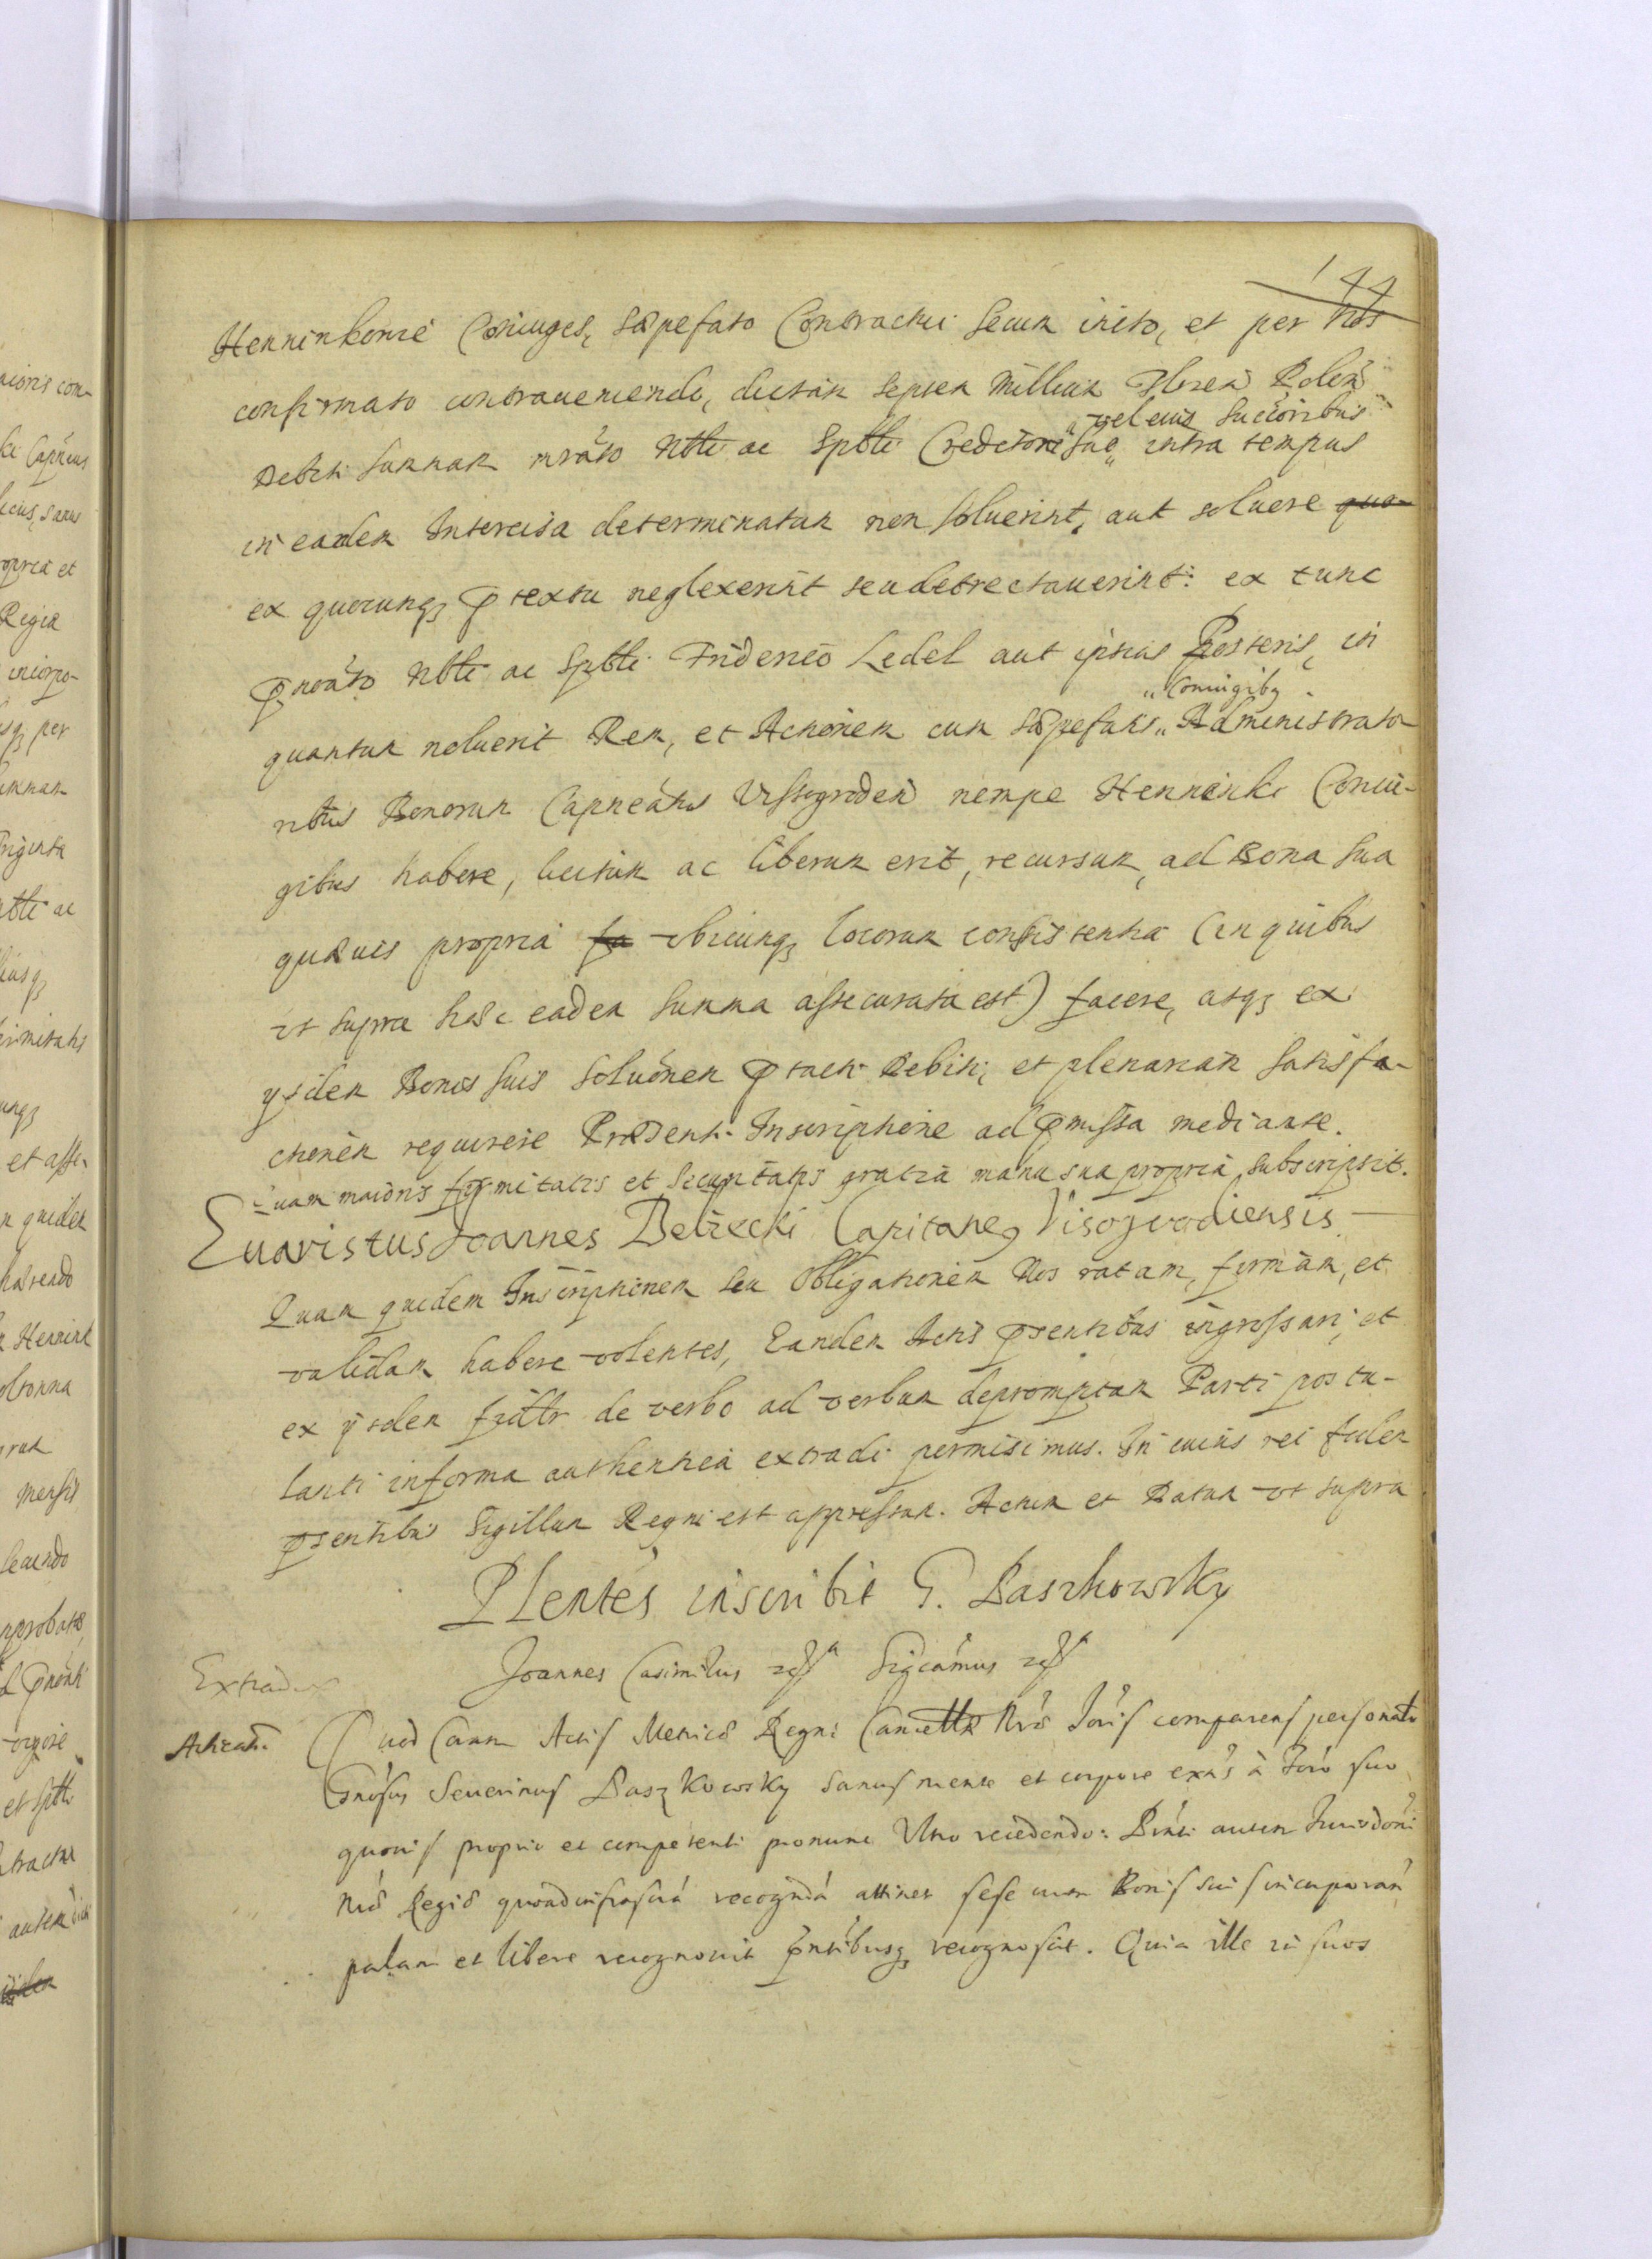 144
Henninkowie Coniuges, sæpefato Contractui secum inito, et per nos
confirmato contraueniendo, dictam septem Millium Floren Polon
vel eius Succoribus
Debiti summam mrato Nbli ac Spbli Creditori suo intra tempus
in eadem Intercisa determinatum non soluerint, aut soluere quo
ex quocunq prætextu neglexerint seu detrectauerint: ex tunc
prnoato Nbli ac Spbli Friderico Ledel aut ipsius Posteris, in
Coniugibq
quantum noluerit Rem, et Actionem cum sæpefatis Administrato-
ribus Bonorum Capneatus Vissogroden nempe Henninki Coniu-
gibus habere, licitum ac liberum erit, recursum, ad Bona sua
quæuis propria fa vbicunq locorum consistentia (in quibus
vt supra hæc eadem summa assecurata est) facere, atq ex
ysdem Bonis suis Soluonem ptacti Debiti, et plenariam satisfa-
ctionem requirere Præsenti Inscriptione ad pmissa mediante.
Quam maioris firmitatis et securitatis gratia manu sua propria subscripsit.
Euaristus Joannes Belzecki Capitaneq Visogrodiensis
Quam quidem Inscriptionem seu Obligationem Nos ratam, firmam, et
validam habere volentes, Eandem Actis psentibus ingrossari, et
ex ysdem fidlr de verbo ad verbum depromptam Parti postu-
lanti in forma authentica extradi permisimus. In cuius rei fidem
psentibus Sigillum Regni est appressum. Actum et Datum vt supra
Plentes inscribit G. Baszkowsky
Extradit
Joannes Casimirus Sigcamus
Quod Coram Actis Metrices Regni Cancellæ Nræ Joris comparens personalr
Gnosus Seuerinus Baszkowsky sanus mente et corpore exns à Foro suo
quouis proprio et competenti pronunc Vltro recedendo: Pnti autem Jurisdoni
Nræ Regiæ quoad infrascra recognda attinet sese cum Bonis suis incorporan
palam et libere recognouit pntibusq recognoscit. Quia ille in suos